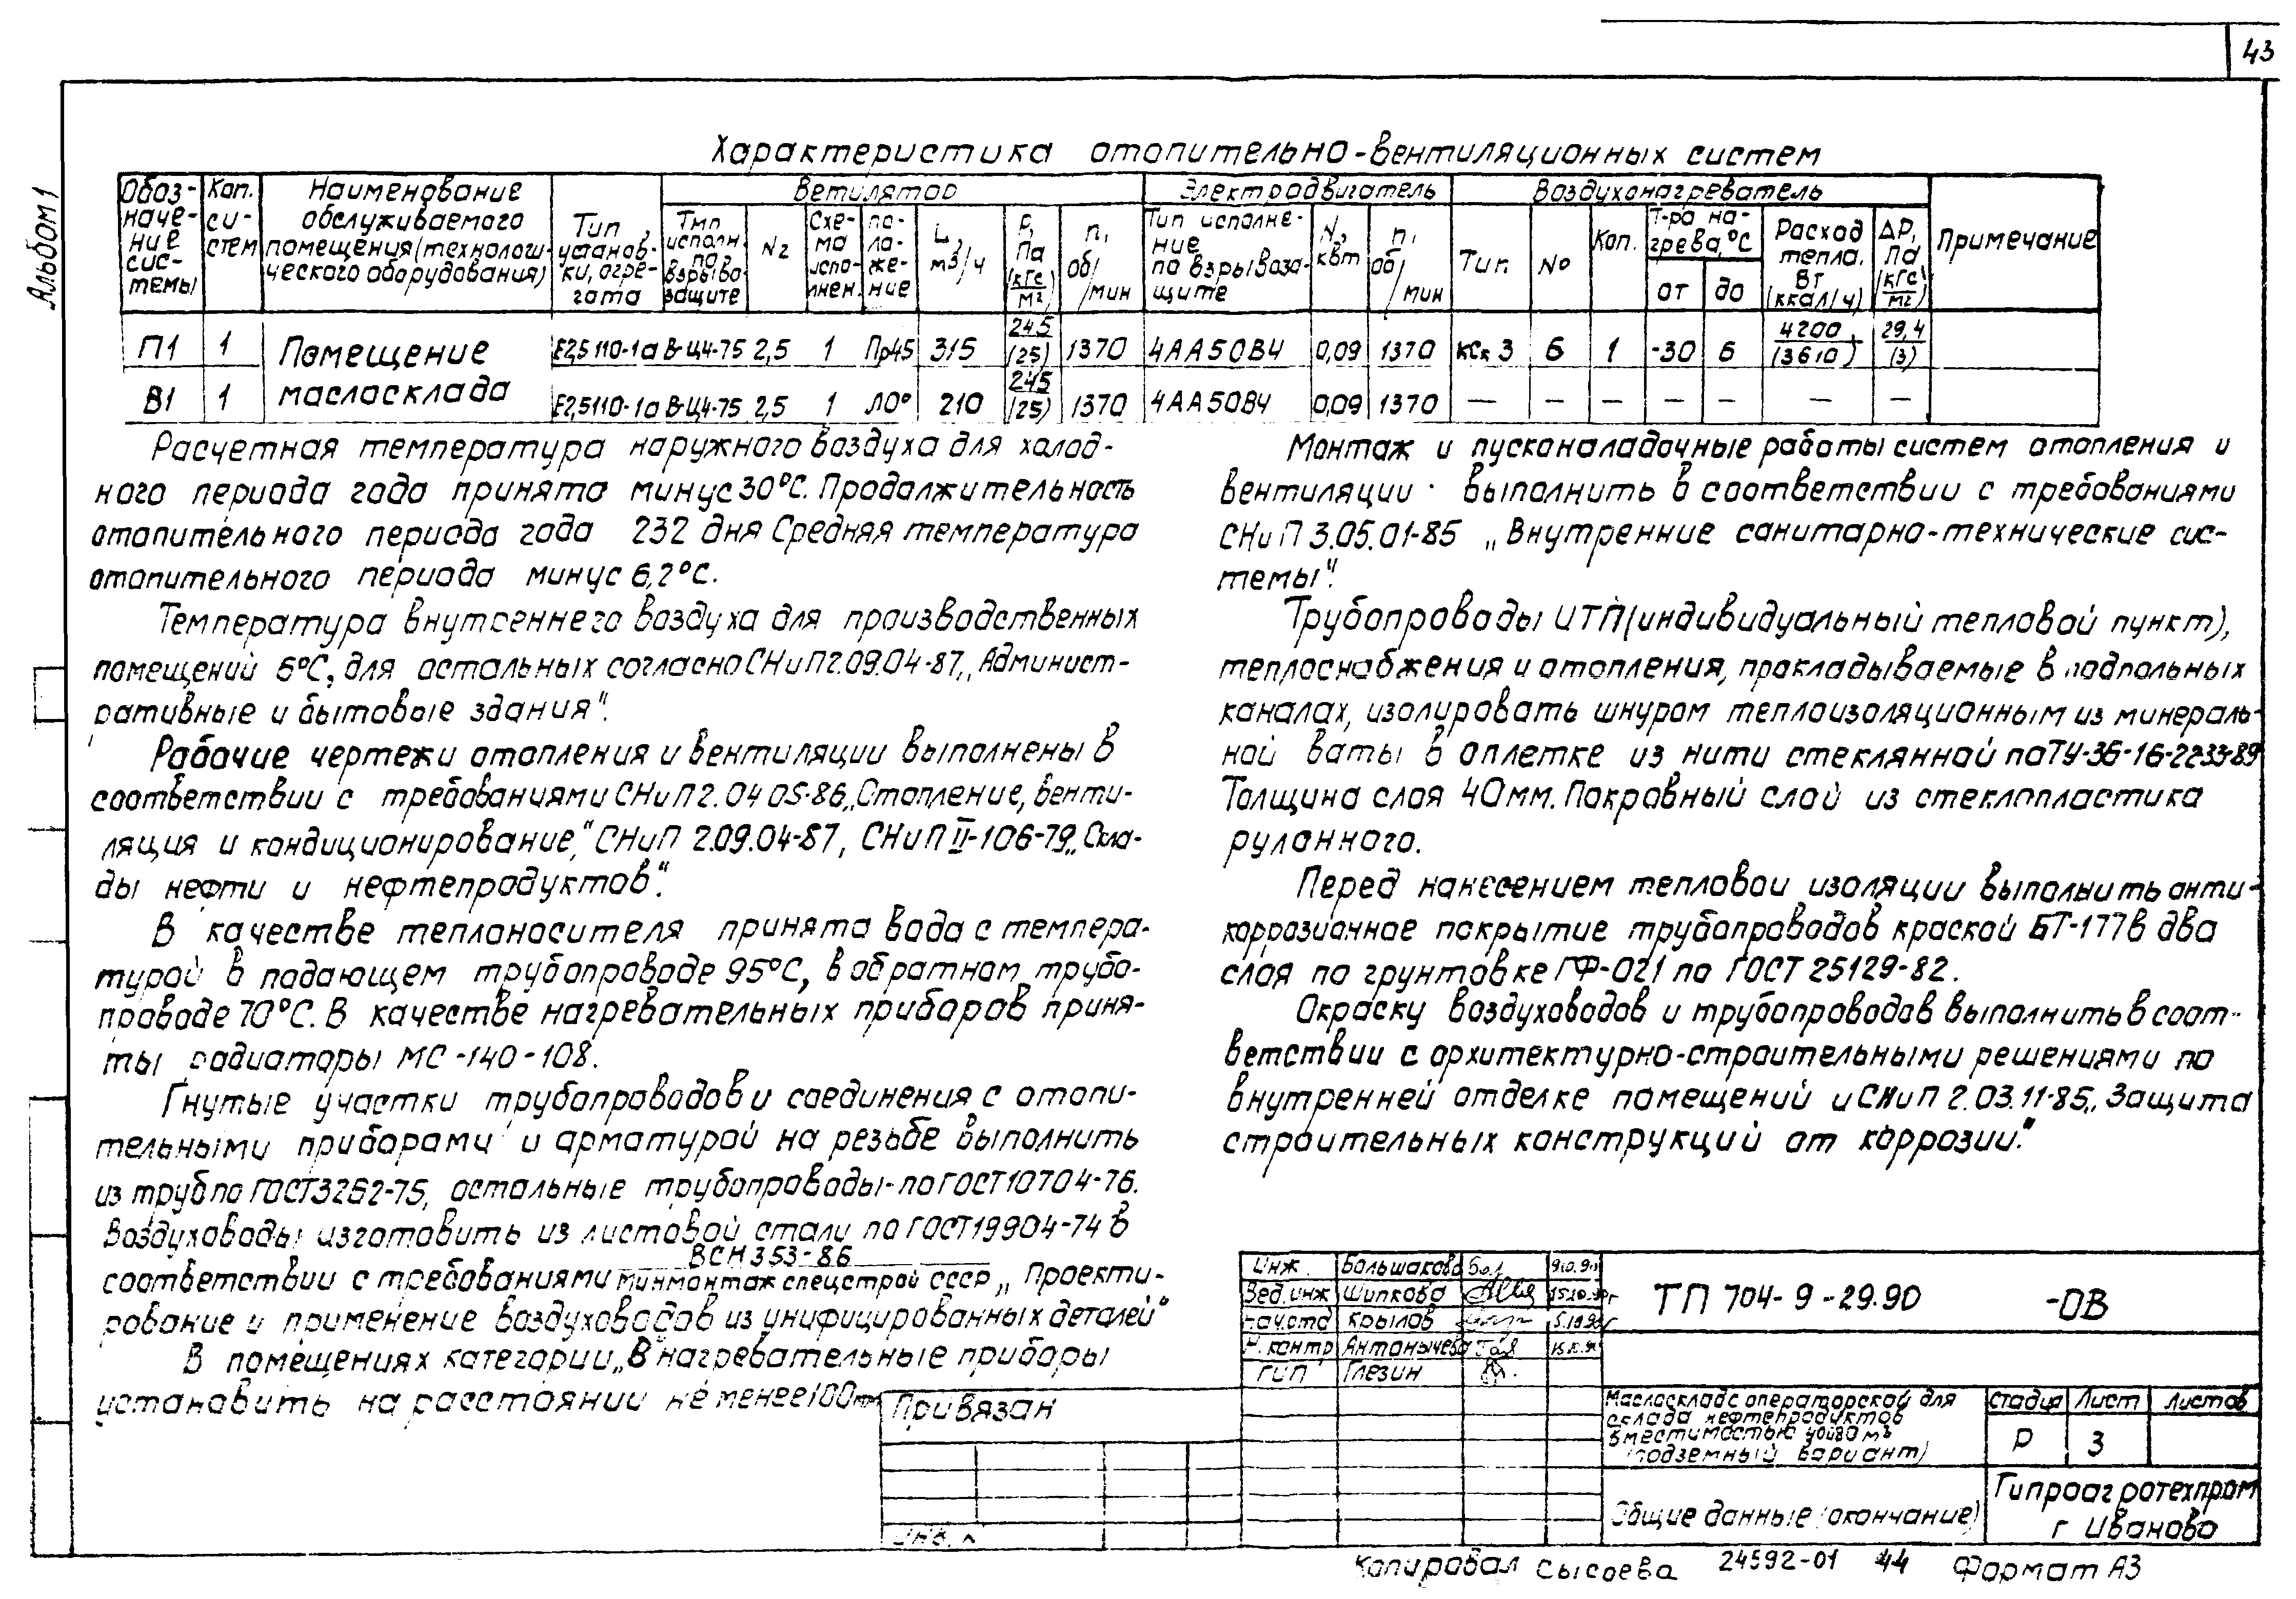 43
Альбом 1
Характеристика отопительно-вентиляционных систем
Обоз-наче-ние сис-темы
Кол. си-стем
Наименование обслуживаемого помещения (технологи-ческого оборудования)
Тип установ-ки, агре-гата
Ветилятор
Тип исполн. по взрыво-защите
№
Схе-ма испо-лнен.
по-ло-же-ние
L, м3/ч
P, Па (кгс/м2)
п, об/мин
Электродвигатель
Тип исполне-ние по взрывоза-щите
N, квт
п, об/мин
Воздухонагреватель
Тип.
№
Кол.
Т-ра на-грева, °С
от
до
Расход тепла. Вт (ккал/ч)
ΔР, Па (кгс/м2)
Примечание
П1 1 Помещение маслосклада Е2,5110-1а В-Ц4-75 2,5 1 Пр45 315 245 (25) 1370 4АА50В4 0,09 1370 КСк 3 6 1 -30 6 4200 (3610) 29,4 (3)
В1 1 Е2,5110-1а В-Ц4-75 2,5 1 Л0° 210 245 (25) 1370 4АА50В4 0,09 1370 — — — — — — —
Расчетная температура наружного воздуха для холод-
ного периода года принята минус 30°С. Продолжительность
отопительного периода года 232 дня Средняя температура
отопительного периода минус 6,2°С.
Температура внутреннего воздуха для производственных
помещений 6°С, для остальных согласно СНиП 2.09.04-87 „Админист-
ративные и бытовые здания".
Рабочие чертежи отопления и вентиляции выполнены в
соответствии с требованиями СНиП 2.04 05-86 „Отопление, венти-
ляция и кондиционирование", СНиП 2.09.04-87, СНиП II-106-79 „Скла-
ды нефти и нефтепродуктов".
В качестве теплоносителя принята вода с темпера-
турой в подающем трубопроводе 95°С, в обратном трубо-
проводе 70°С. В качестве нагревательных приборов приня-
ты радиаторы МС-140-108.
Гнутые участки трубопроводов и соединения с отопи-
тельными приборами и арматурой на резьбе выполнить
из труб по ГОСТ 3262-75, остальные трубопроводы - по ГОСТ 10704-76.
Воздуховоды изготовить из листовой стали по ГОСТ 19904-74 в
соответствии с требованиями ВСН 353-86 минмонтажспецстрой СССР „Проекти-
рование и применение воздуховодов из унифицированных деталей"
В помещениях категории „В" нагревательные приборы
установить на расстоянии не менее 100мм
Монтаж и пусконаладочные работы систем отопления и
вентиляции выполнить в соответствии с требованиями
СНиП 3.05.01-85 „Внутренние санитарно-технические сис-
темы".
Трубопроводы ИТП (индивидуальный тепловой пункт),
теплоснабжения и отопления, прокладываемые в подпольных
каналах, изолировать шнуром теплоизоляционным из минераль-
ной ваты в оплетке из нити стеклянной по ТУ-36-16-22-33-89
Толщина слоя 40мм. Покровный слой из стеклопластика
рулонного.
Перед нанесением тепловой изоляции выполнить анти-
коррозионное покрытие трубопроводов краской БТ-177 в два
слоя по грунтовке ГФ-021 по ГОСТ 25129-82.
Окраску воздуховодов и трубопроводов выполнить в соот-
ветствии с архитектурно-строительными решениями по
внутренней отделке помещений и СНиП 2.03.11-85 „Защита
строительных конструкций от коррозии."
Привязан
Инв. №
Инж. Большакова
Вед.инж Шипкова
Нач.отд Крылов
Н.контр Антонычева
ГИП Глезин
ТП 704-9-29.90 -ОВ
Маслосклад с операторской для
склада нефтепродуктов
вместимостью
(подземный вариант)
Стадия Лист Листов
Р 3
Общие данные (окончание)
Гипроагротехпром
г Иваново
Копировал Сысоева 24592-01 44 Формат А3